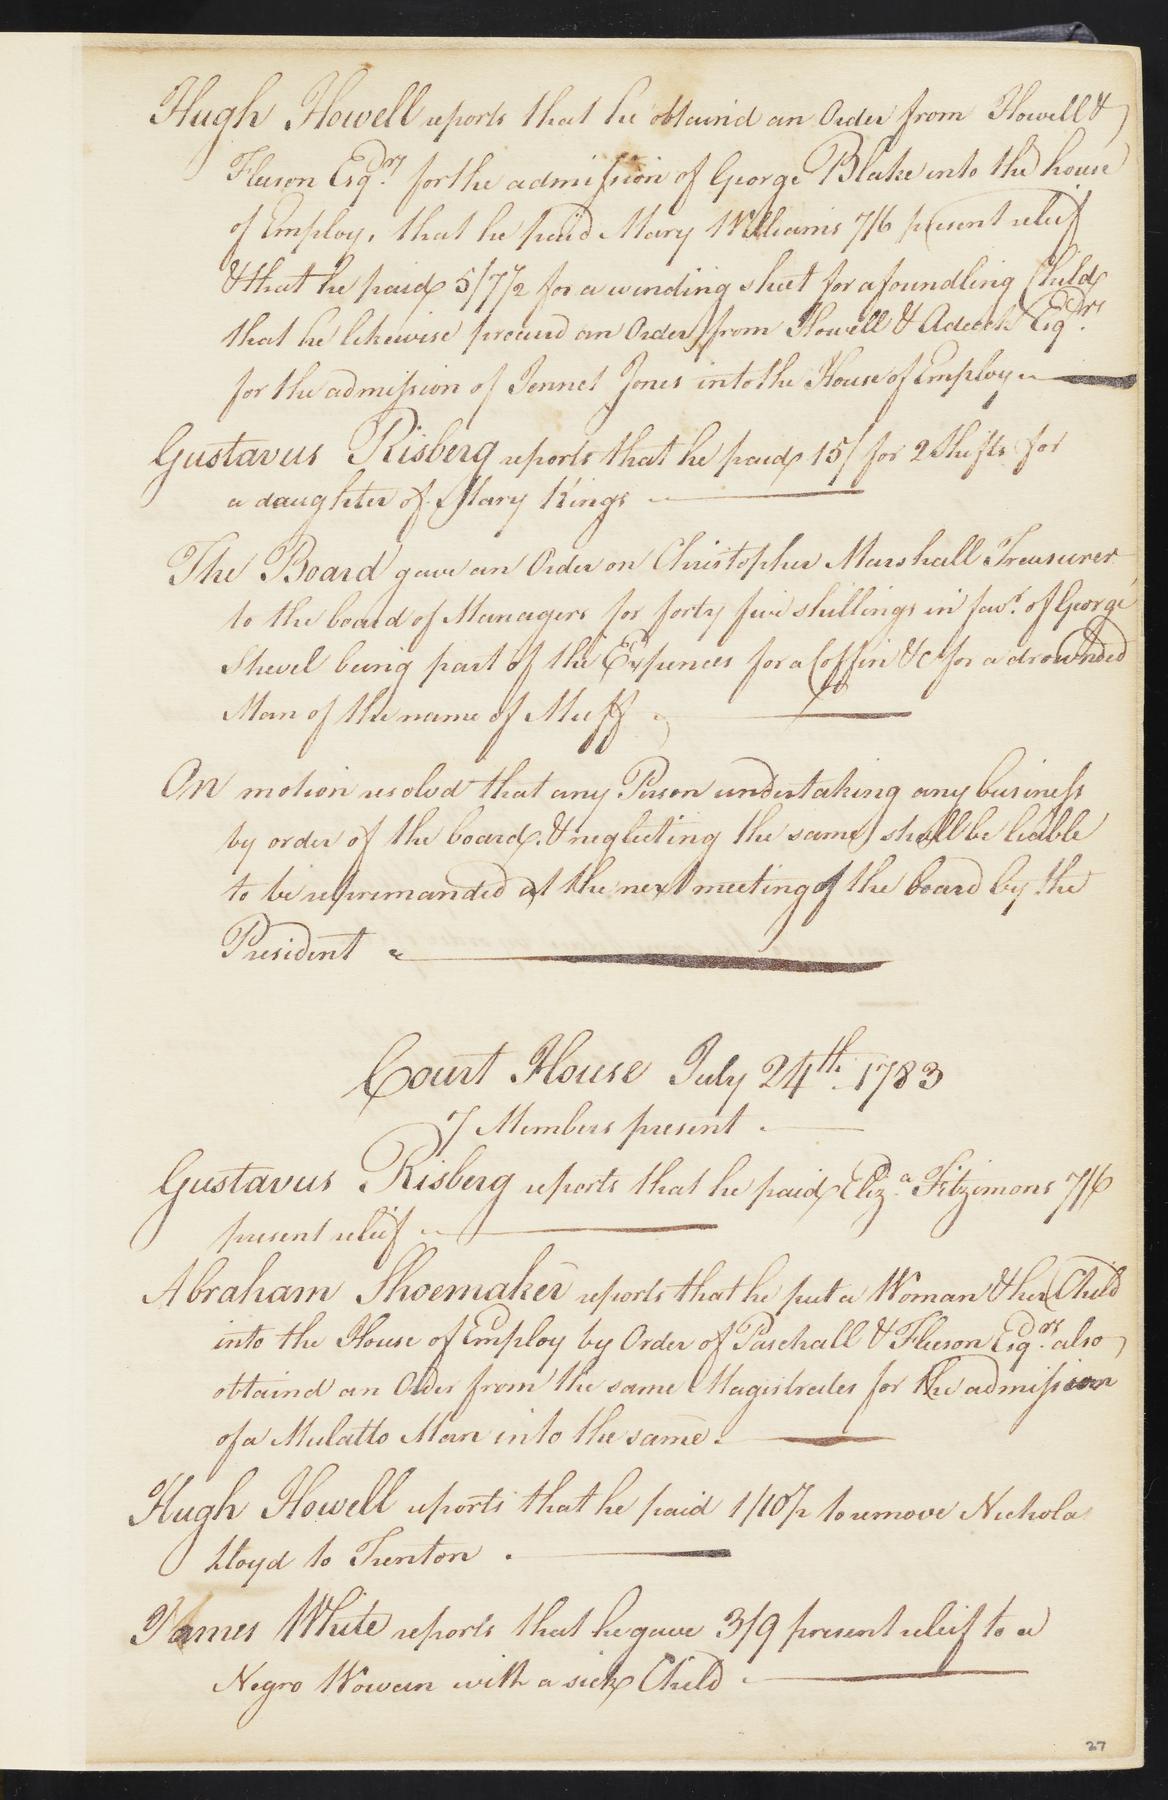 Hugh Howell reports that he obtaind an Order from Howell &
Fleeson Esqrs for the admission of George Blake into the house
of Employ, that he paid Mary Williams 7/6 present relief
& that he paid 5/7½ for a winding sheet for a foundling Child
that he likewise procurd an Order from Howell & Adcock Esqrs
for the admission of Jennet Jones into the House of Employ
Gustavus Risberg reports that he paid 15/ for 2 Shifts for
a daughter of Mary Kings
The Board gave an Order on Christopher Marshall Treasurer
to the board of Managers for forty five shillings in favr of George
Shevel being part of the Expences for a Coffin &c for a drownded
Man of the name of Muff
On motion resolvd that any Person undertaking any business
by order of the board, & neglecting the same shall be liable
to be reprimanded at the next meeting of the board by the
President
Court House July 24th 1783
7 Members present
Gustavus Risberg reports that he paid Eliza Fitzimons 7/6
present relief
Abraham Shoemaker reports that he put a Woman & her Child
into the House of Employ by Order of Paschall & Fleeson Esqrs also
obtaind an Order from the same Magistrates for the admission
of a Mulatto Man into the same.
Hugh Howell reports that he paid 1/10½ to remove Nichola
Lloyd to Trenton .
James White reports that he gave 3/9 present relief to a
Negro Wowan with a sick Child
27